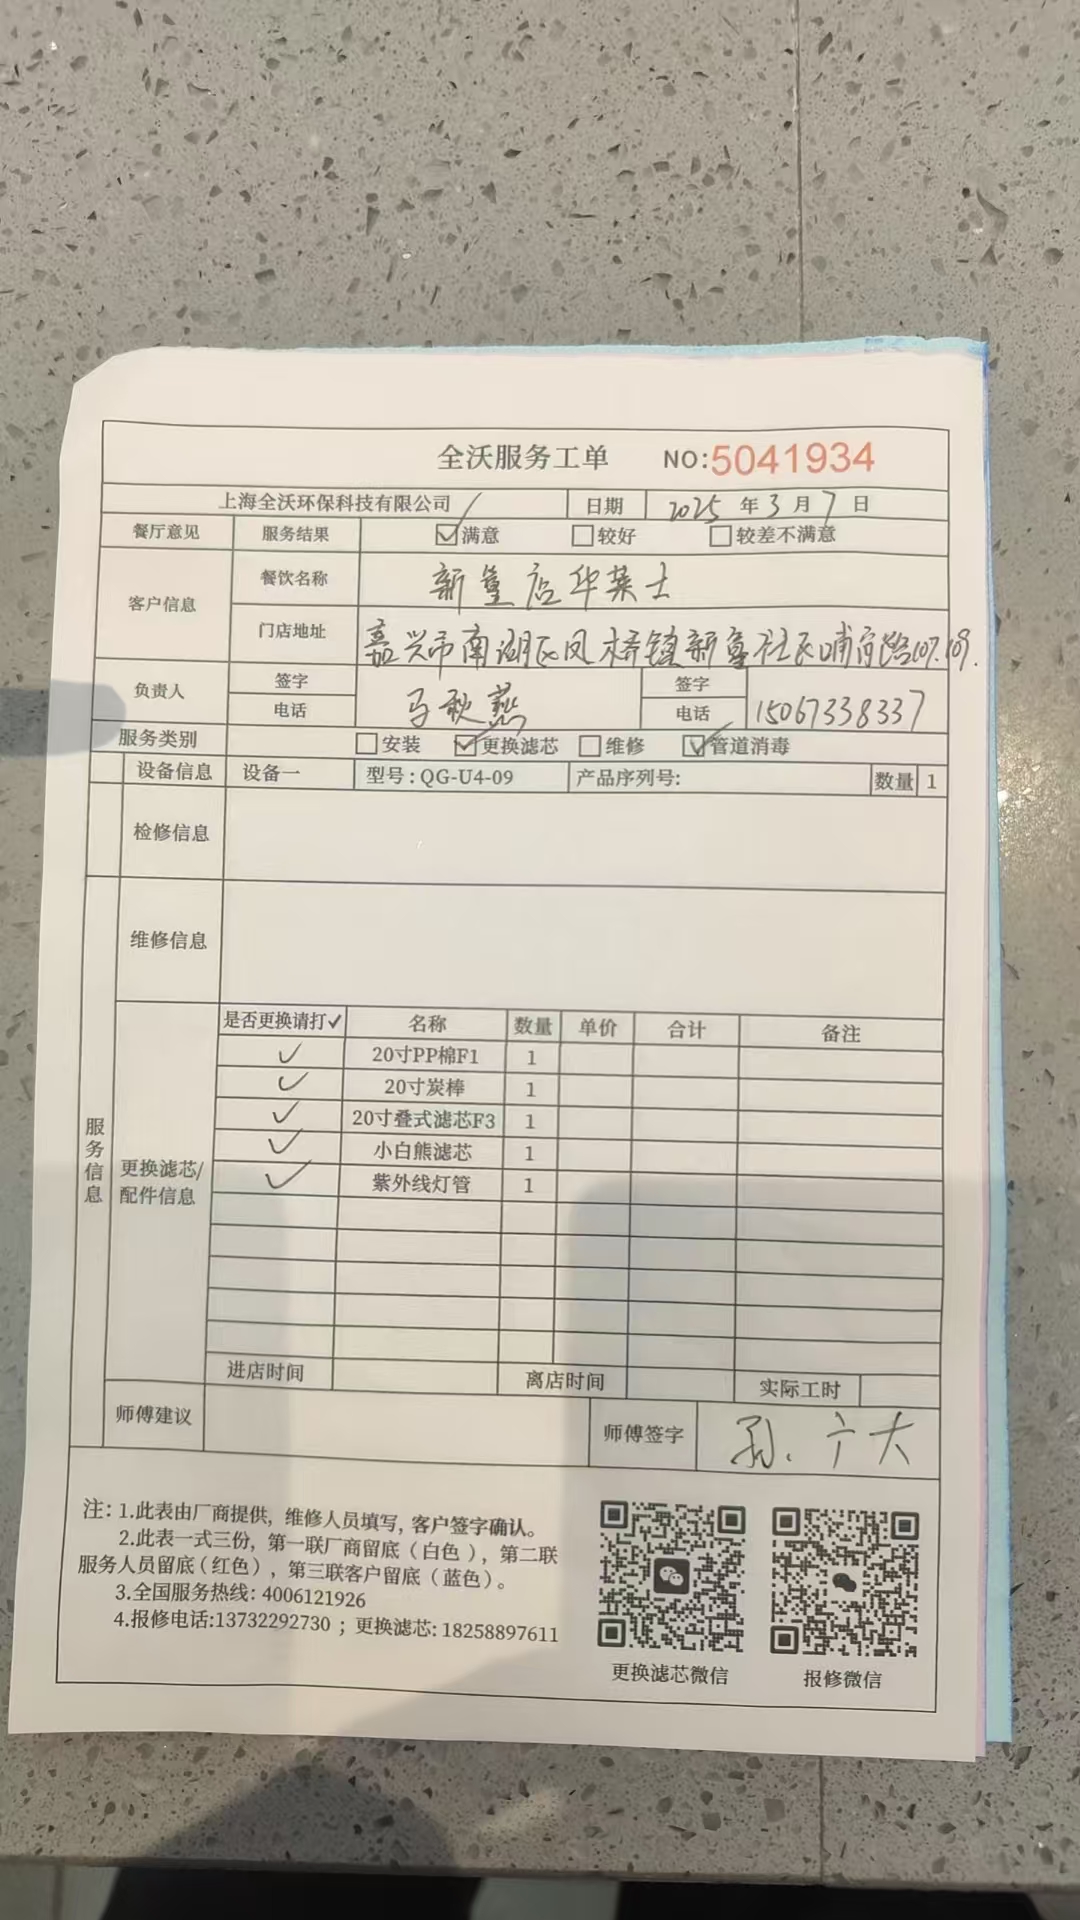 全沃服务工单 NO:5041934
上海全沃环保科技有限公司 日期 2025 年 3 月 7 日
餐厅意见 服务结果 ☑满意 □较好 □较差不满意
客户信息 餐饮名称 新篁店华莱士
门店地址 嘉兴市南湖区凤桥镇新篁社区 路107.109.
负责人 签字 马秋燕 签字
电话 电话 15067338337
服务类别 □安装 ☑更换滤芯 □维修 ☑管道消毒
设备信息 设备一 型号: QG-U4-09 产品序列号: 数量 1
检修信息
维修信息
服务信息
更换滤芯/配件信息
是否更换请打✓ 名称 数量 单价 合计 备注
✓ 20寸PP棉F1 1
✓ 20寸炭棒 1
✓ 20寸叠式滤芯F3 1
✓ 小白熊滤芯 1
✓ 紫外线灯管 1
进店时间 离店时间 实际工时
师傅建议 师傅签字 孙广大
注: 1.此表由厂商提供, 维修人员填写, 客户签字确认。
2.此表一式三份, 第一联厂商留底（白色）, 第二联
服务人员留底（红色）, 第三联客户留底（蓝色）。
3.全国服务热线: 4006121926
4.报修电话:13732292730 ; 更换滤芯: 18258897611
更换滤芯微信 报修微信